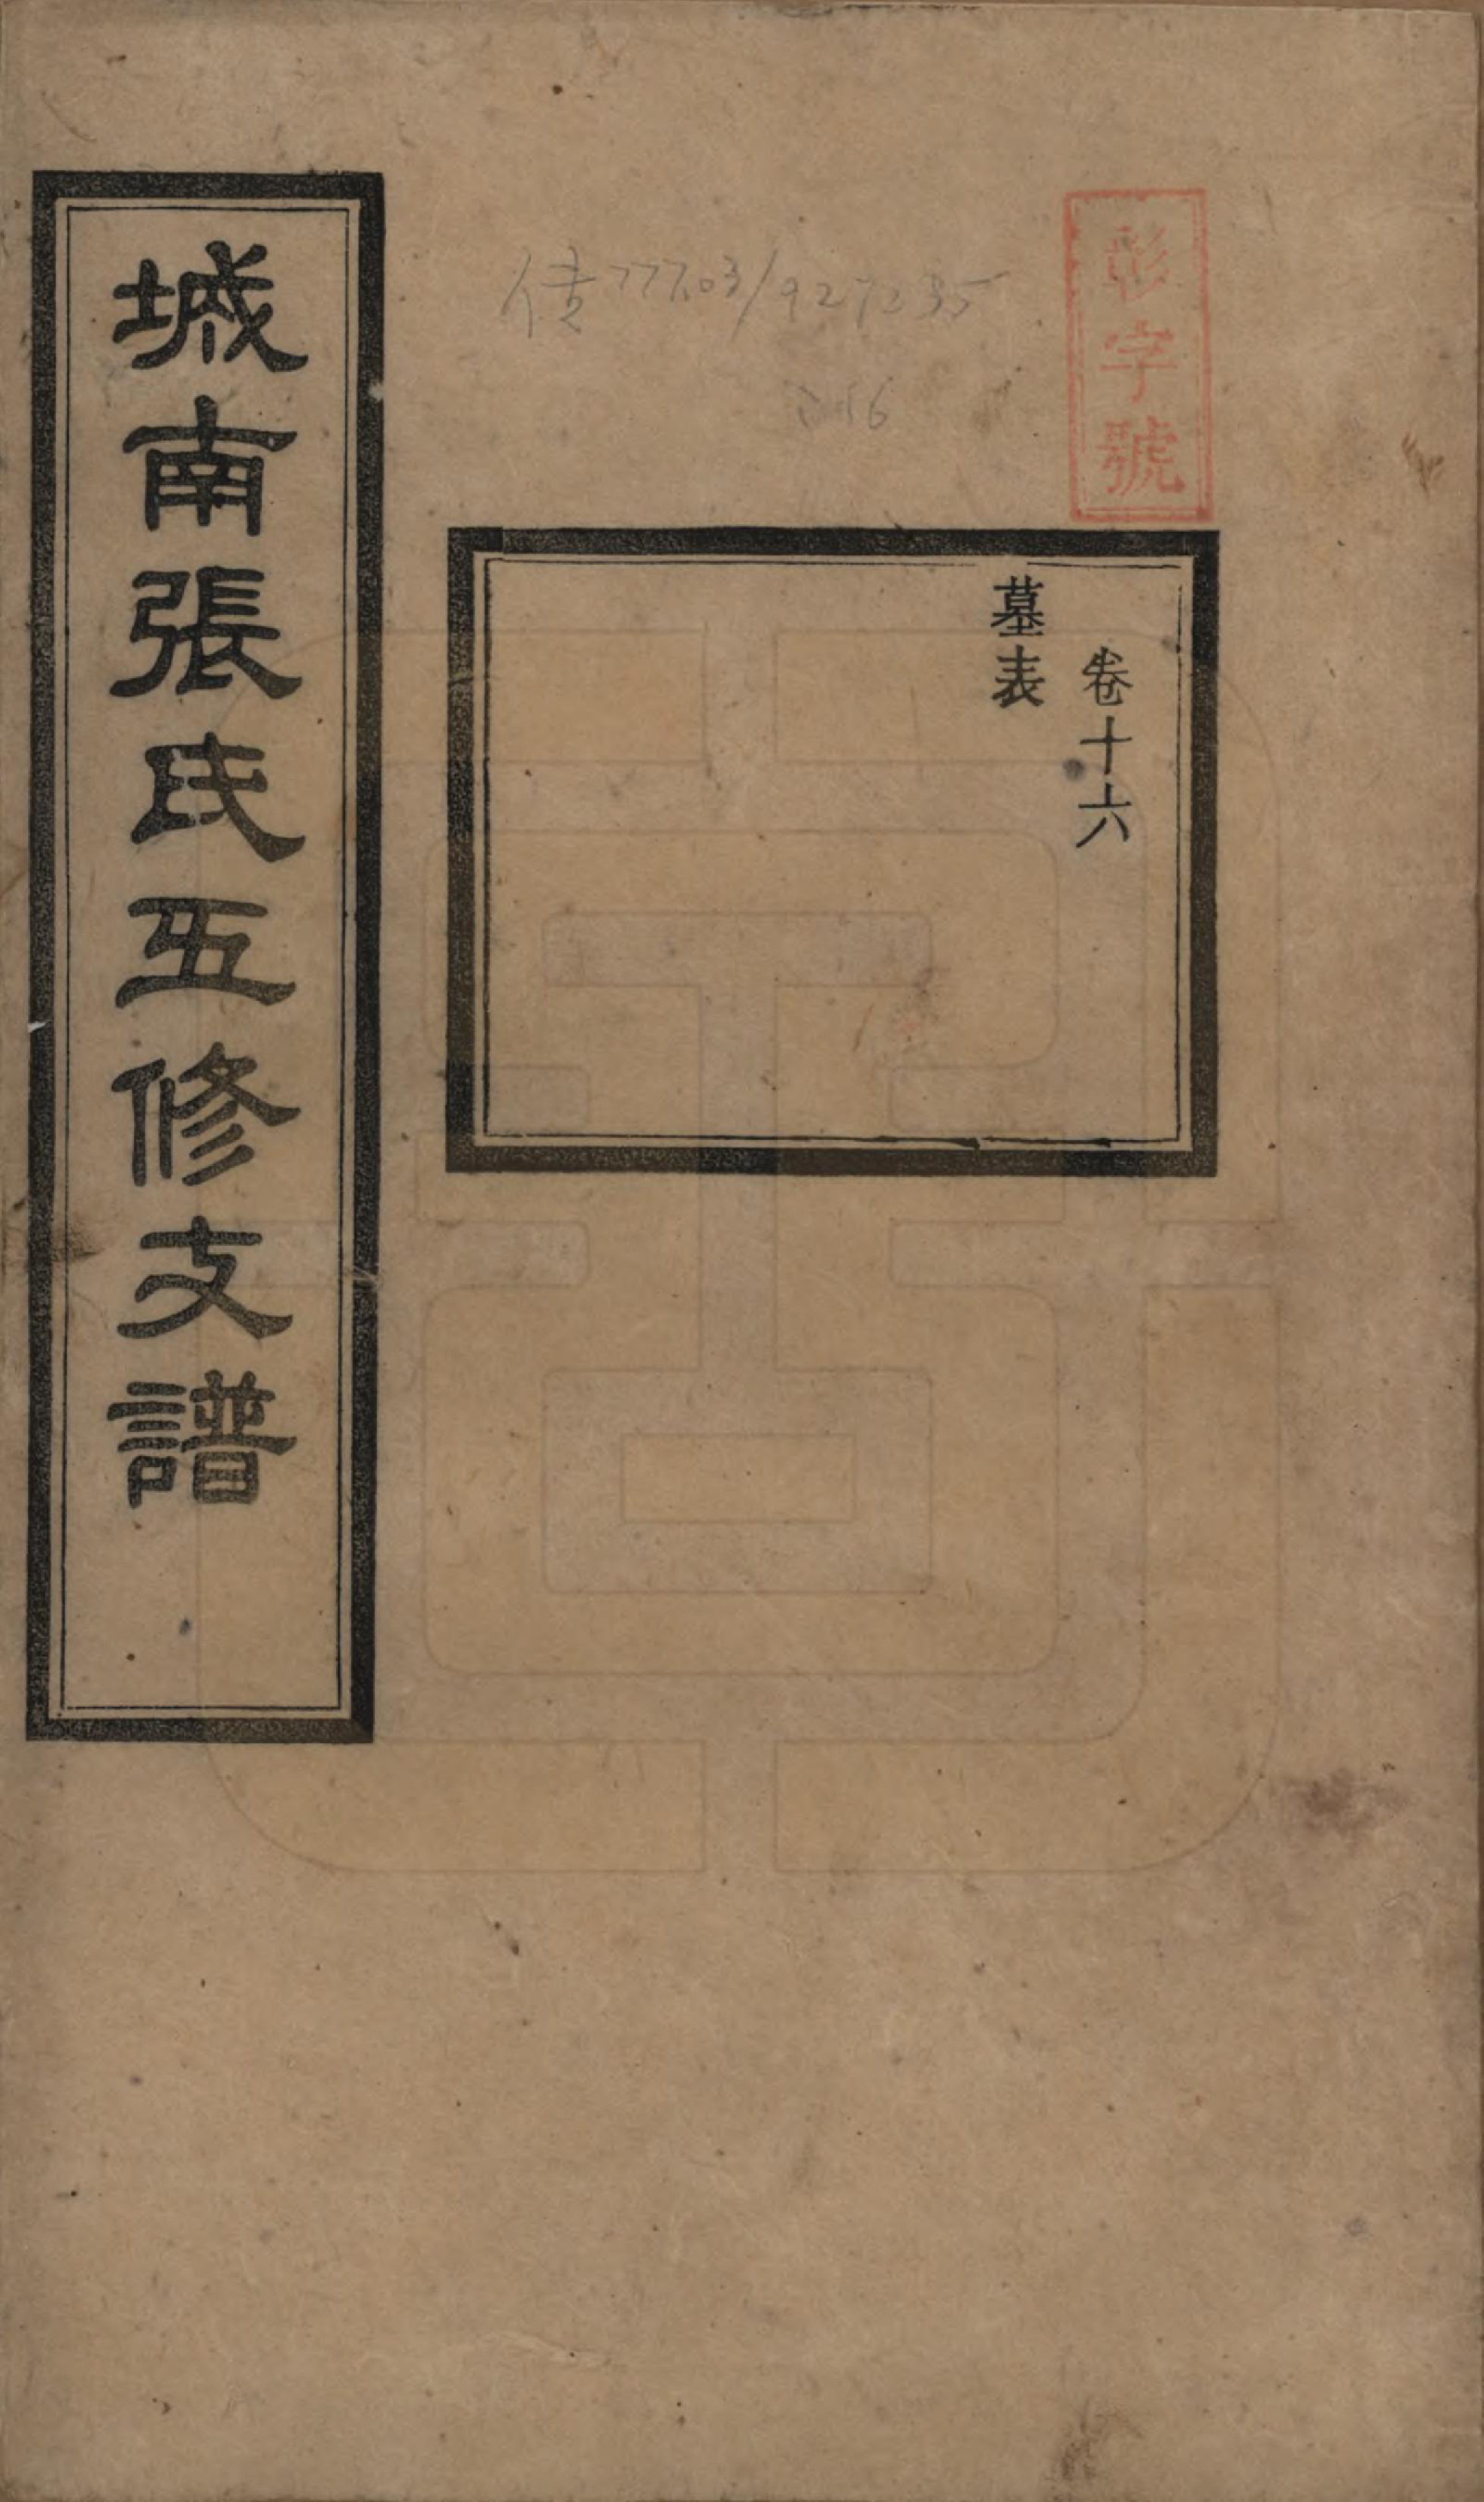 彰字號
传777.03/927235
:16
卷十六
墓表
城南張氏五修支譜